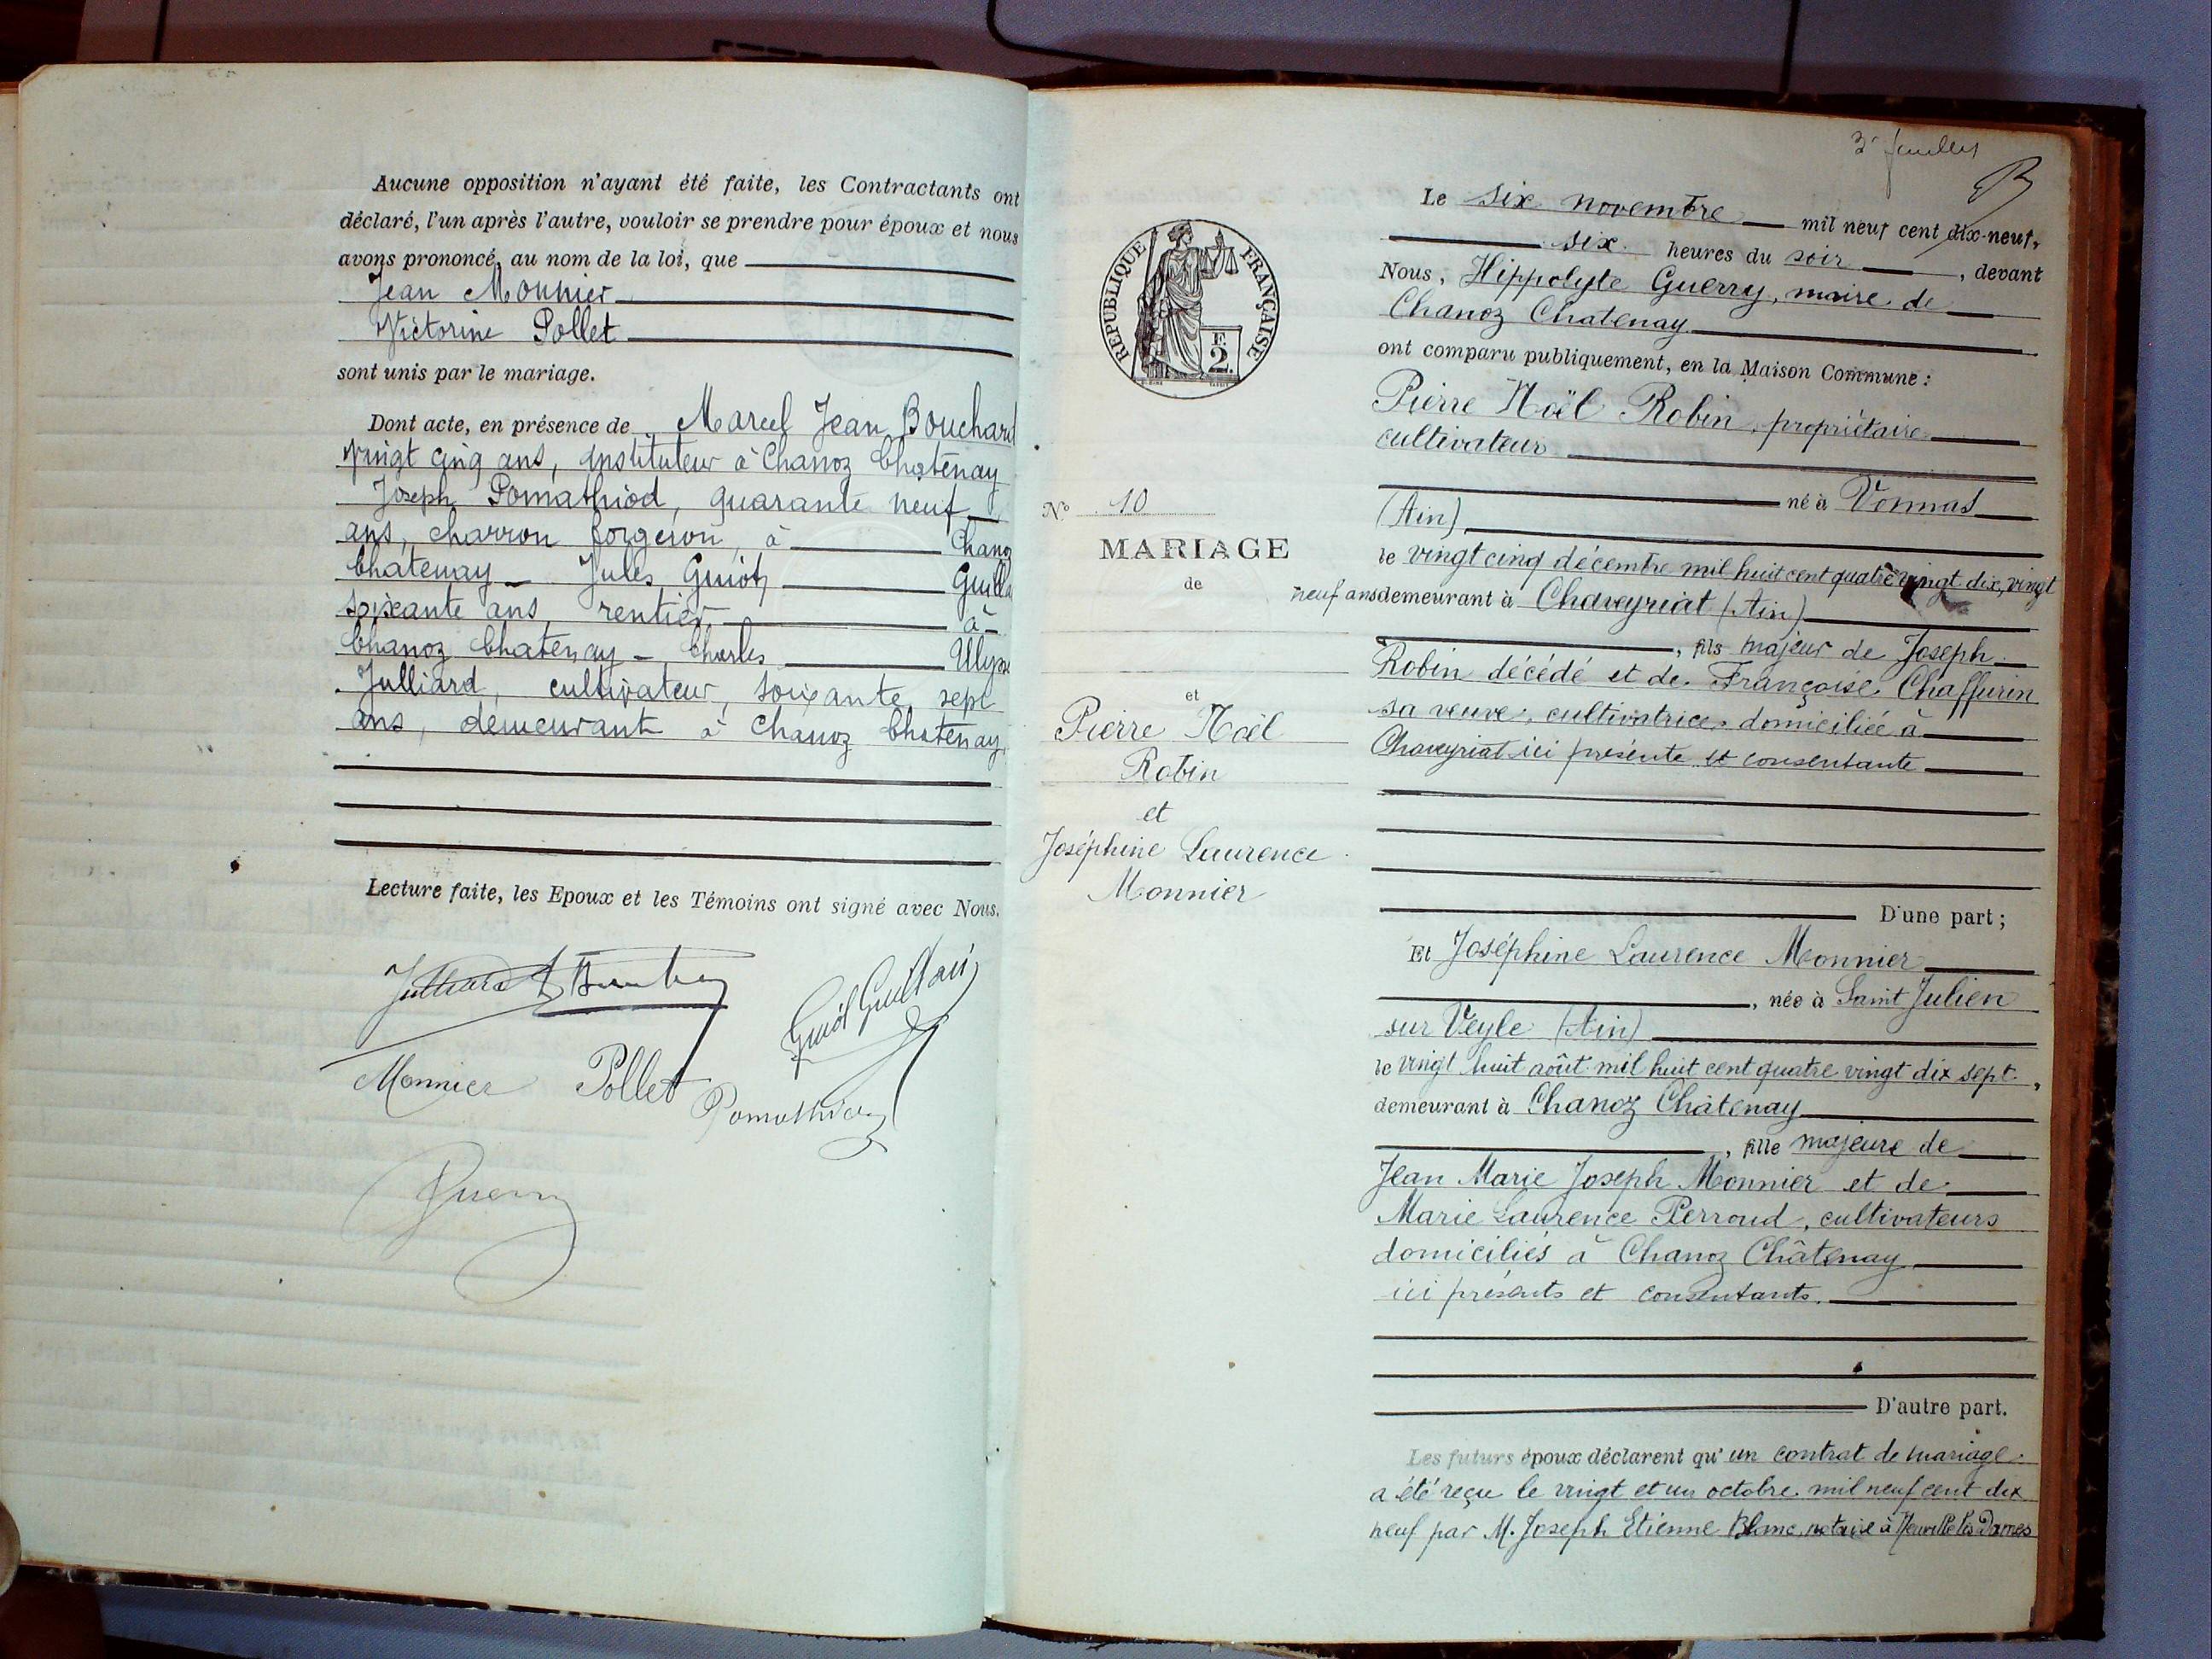 Aucune opposition n'ayant été faite, les Contractants ont
déclaré, l'un après l'autre, vouloir se prendre pour époux et nous
avons prononcé, au nom de la loi, que
Jean Monnier
Victorine Pollet
sont unis par le mariage.
Dont acte, en présence de Marcel Jean Bouchard
vingt cinq ans, instituteur à Chanoz Chatenay
Joseph Pomathiod, quarante neuf
ans, charron forgeron, à Chanoz
Chatenay - Jules Guiot
soixante ans, rentier, à
Chanoz Chatenay - Charles Ulysse
Julliard, cultivateur, soixante sept
ans, demeurant à Chanoz Chatenay
Lecture faite, les Epoux et les Témoins ont signé avec Nous.
Julliard
Monnier Pollet
Pomathiod
Guerry
3e feuillet
Le six novembre mil neuf cent dix-neuf,
six heures du soir, devant
Nous, Hippolyte Guerry, maire de
Chanoz Chatenay
ont comparu publiquement, en la Maison Commune :
Pierre Noël Robin, propriétaire
cultivateur
né à Vonnas
(Ain)
le vingt cinq décembre mil huit cent quatre vingt dix, vingt
neuf ans demeurant à Chaveyriat (Ain)
, fils majeur de Joseph
Robin décédé et de Françoise Chaffurin
sa veuve, cultivatrice domiciliée à
Chaveyriat ici présente et consentante
D'une part ;
Et Joséphine Laurence Monnier
, née à Saint Julien
sur Veyle (Ain)
le vingt huit août mil huit cent quatre vingt dix sept,
demeurant à Chanoz Châtenay
, fille majeure de
Jean Marie Joseph Monnier et de
Marie Laurence Perroud, cultivateurs
domiciliés à Chanoz Châtenay
ici présents et consentants.
D'autre part.
Les futurs époux déclarent qu'un contrat de mariage
a été reçu le vingt et un octobre mil neuf cent dix
neuf par M. Joseph Etienne Blanc, notaire à Neuville les Dames
RÉPUBLIQUE FRANÇAISE
F
2
N° 10
MARIAGE
de
et
Pierre Noël
Robin
et
Joséphine Laurence
Monnier